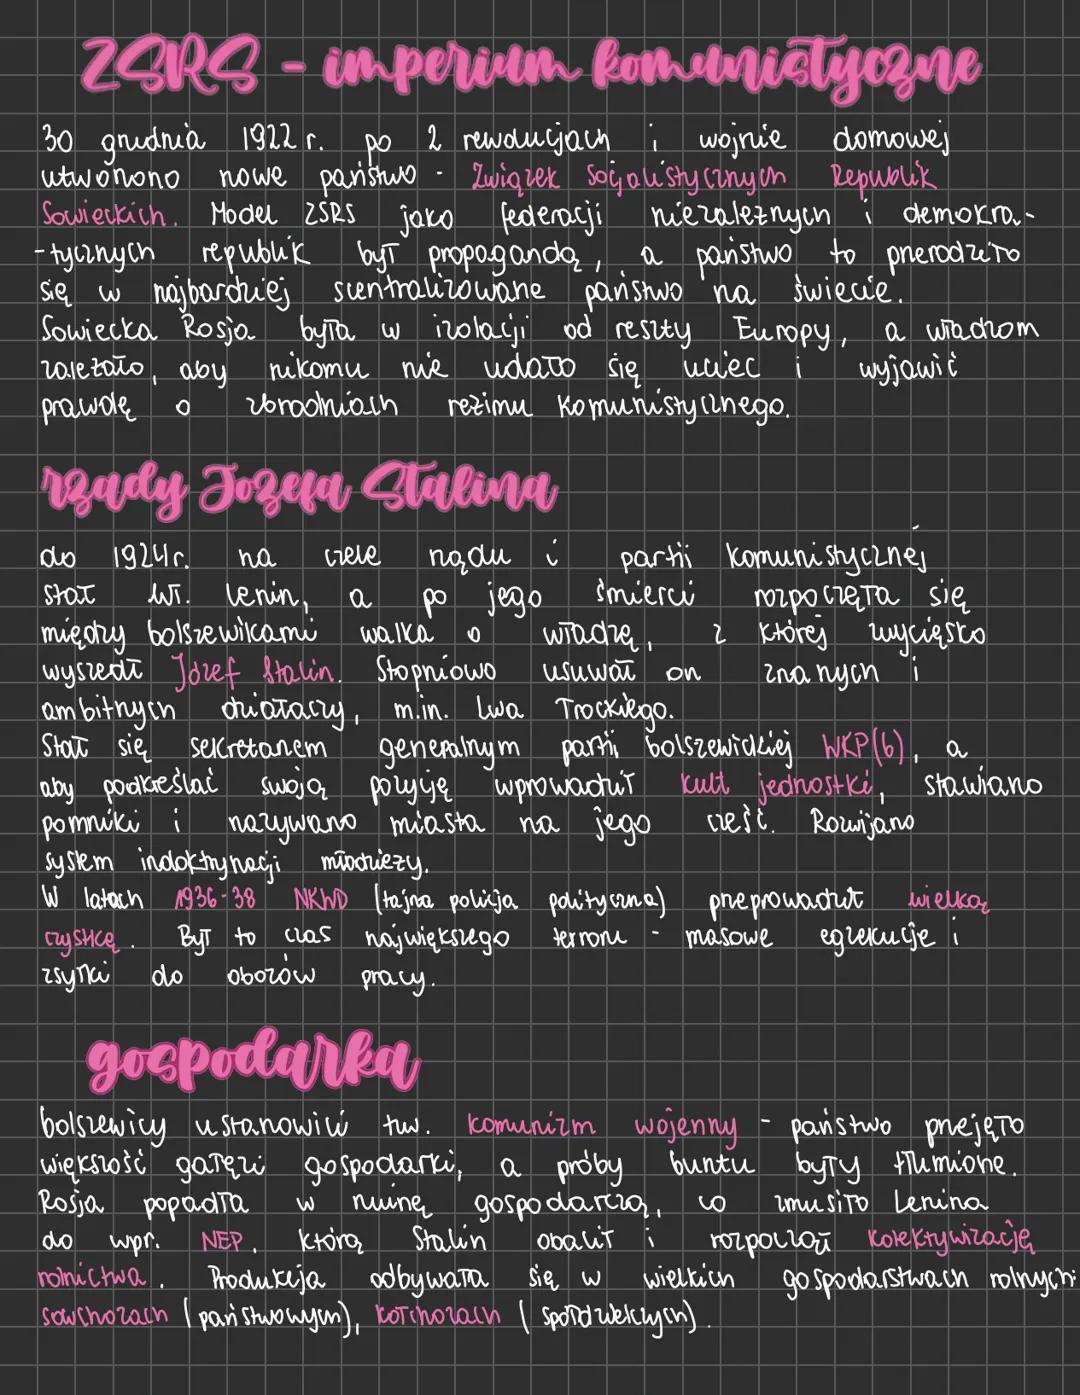 ZSRS - imperium komunistyczne
30 grudnia 1922 r. po 2 rewolucjach i wojnie domowej
utworzono nowe państwo - Związek Socjalistycznych Republik
Sowieckich. Model ZSRS jako federacji niezależnych i demokra-
-tycznych republik był propagandą, a państwo to przerodziło
się w najbardziej scentralizowane państwo na świecie.
Sowiecka Rosja była w izolacji od reszty Europy, a władzom
zależało, aby nikomu nie udało się uciec i wyjawić
prawdę o zbrodniach reżimu komunistycznego.
rządy Józefa Stalina
do 1924 r. na czele rządu i partii komunistycznej
stał Wł. Lenin, a po jego śmierci rozpoczęła się
między bolszewikami walka o władzę, z której zwycięsko
wyszedł Józef Stalin. Stopniowo usuwał on znanych i
ambitnych działaczy, m.in. Lwa Trockiego.
Stał się sekretarzem generalnym partii bolszewickiej WKP(b), a
aby podkreślać swoją pozycję wprowadził kult jednostki, stawiano
pomniki i nazywano miasta na jego cześć. Rozwijano
system indoktrynacji młodzieży.
W latach 1936-38 NKWD (tajna policja polityczna) przeprowadził wielką
czystkę. Był to czas największego terroru - masowe egzekucje i
zsyłki do obozów pracy.
gospodarka
bolszewicy ustanowili tzw. komunizm wojenny - państwo przejęło
większość gałęzi gospodarki, a próby buntu były tłumione.
Rosja popadła w ruinę gospodarczą, co zmusiło Lenina
do wpr. NEP, którą Stalin obalił i rozpoczął kolektywizację
rolnictwa. Produkcja odbywała się w wielkich gospodarstwach rolnych:
sowchozach (państwowych), kołchozach (spółdzielczych).